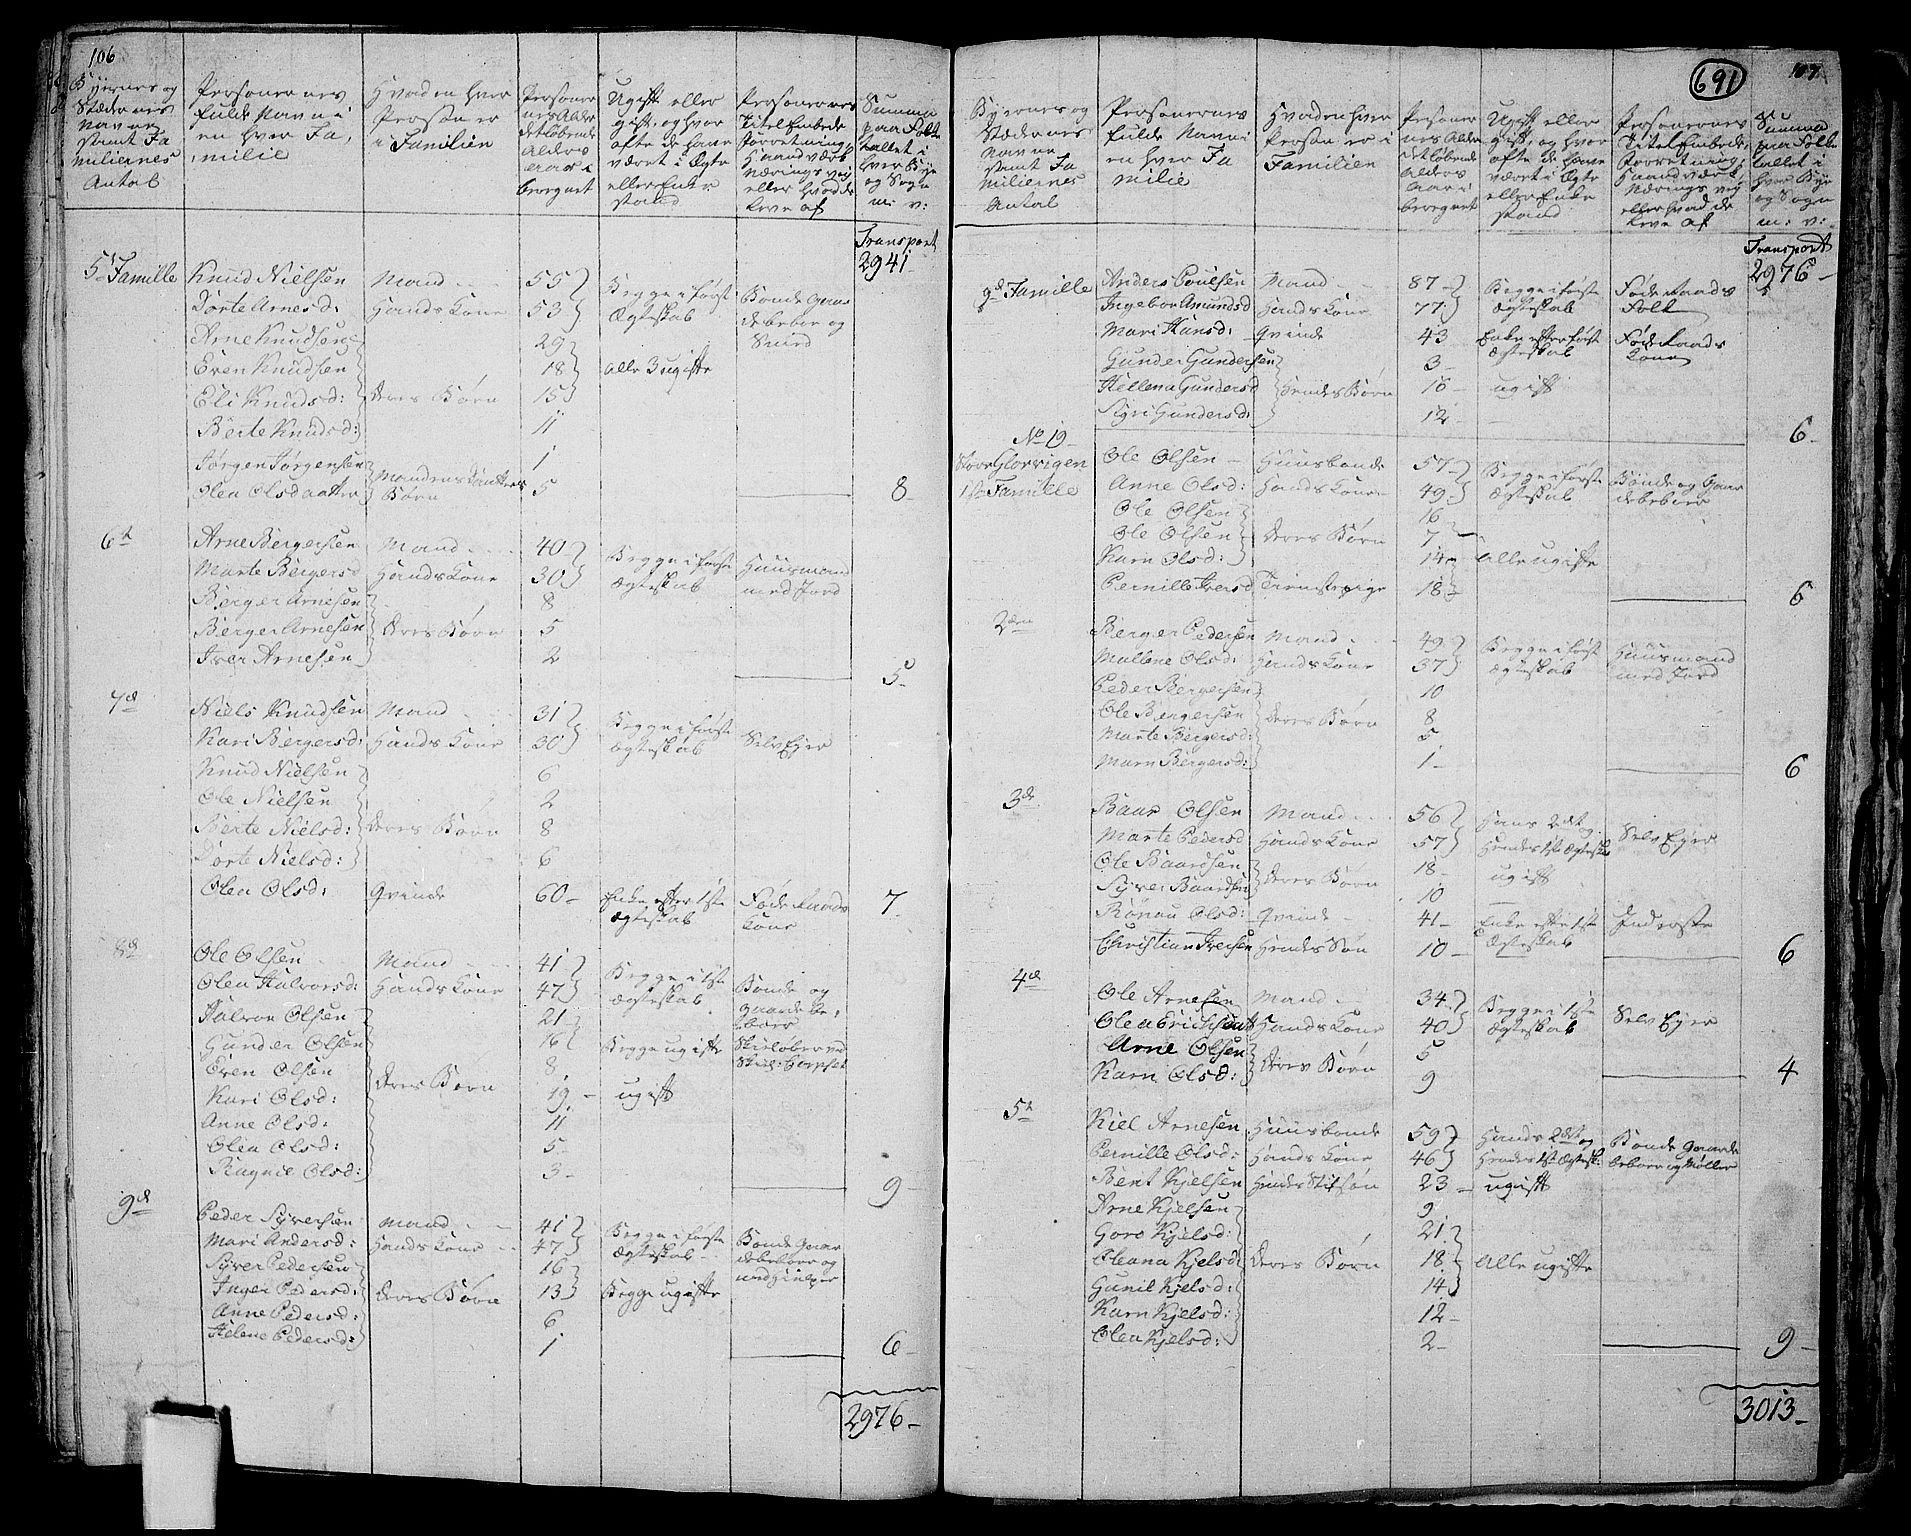 106
Byernes og Stædernes Navne samt Familiernes Antal
Personernes fulde Navn i en hver Familie
Hvad en hver Person er i Familien
Personernes Alder det løbende Alders Aar i beregnet
Ugift eller gift, og hvor ofte de have været i Ægte eller Enke stand
Personernes Titel Embede Forretning Haandværk Nærings vej eller hvad de leve af
Summa paa Folketallet i hver Bye og Sogn m: v:
Transport 2941
5te Famille Knud Nielsen Mand 55 Begge i først Ægteskab Bonde Gaardebeboer og Smed
Dorte Arnesd: Hands Kone 53
Arne Knudsen 29
Even Knudsen 18 alle 3 ugifte
Eli Knudsd: Deres Børn 15
Berte Knudsd: 11
Jørgen Jørgensen Mandens Dautters Børn 1
Olea Olsdaatter 5 8
6te Arne Bergersen Mand 40 Begge i første Ægteskab Huusmand med Jord
Marte Bergersd Hands Kone 30
Berger Arnesen 8
Berger Arnesen Deres Børn 5
Iver Arnesen 2 5
7de Niels Knudsen Mand 31 Begge i første ægteskab Selv Ejer
Kari Bergersd: Hands Kone 30
Knud Nielsen 6
Ole Nielsen 2
Berte Nielsd: Deres Børn 8
Dorte Nielsd: 6
Olea Olsd: Qvinde 60 Enke efter 1ste Ægteskab Føderaads Kone 7
8de Ole Olsen Mand 41 Begge i 1ste ægteskab Bonde og gaardebeboer
Olea Halvorsd: Hands Kone 47
Halvor Olsen 21
Gunder Olsen 16 Begge ugifte Skieløber ved Skie: Corpset
Even Olsen 8
Kari Olsd: Deres Børn 19 ugift
Anne Olsd: 11
Olea Olsd: 5
Ragnie Olsd: 3 9
9de Peder Syversen Mand 41 Begge i første Ægteskab Bonde Gaardebeboer og
Mari Andersd: Hands Kone 47
Syver Pedersen 16
Inger Pedersd: Deres Børn 13 Begge ugifte
Anne Pedersd: 6
Helene Pedersd: 1 6
2976
691
107
Byernes og Stædernes Navne samt Familiernes Antal
Personernes fulde Navn i en hver Familie
Hvad en hver Person er i Familien
Personernes Alder det løbende Alders Aar i beregnet
Ugift eller gift, og hvor ofte de have været i Ægte eller Enke stand
Personernes Titel Embede, Forretning, Haandværk, Nærings vej eller hvad de leve af
Summa paa Folketallet i hver Bye og Sogn m: v:
Transport 2976
9de Famille Anders Poulsen Mand 87 Begge i først ægteskab Føderaads Folk
Ingebor Amundsd Hands Kone 77
Mari Hansd: Qvinde 43 Enke efter først Ægteskab Føderaads Kone
Gunder Gundersen 3
Hellena Gundersd Hendes Børn 16 ugift
Syri Gundersd: 12 6
No 19
Stoor Glorrigen Ole Olsen Huusbonde 57 Begge i første Ægteskab Bonde og Gaardebeboer
1ste Famille Anne Olsd: Hands Kone 49
Ole Olsen 16
Ole Olsen Deres Børn 7
Karn Olsd: 14 alle ugifte
Pernille Iversd Tienstepige 18 6
2den Berger Pedersen Mand 49 Begge i først ægteskab Huusmand med Jord
Mallene Olsd: Hands Kone 37
Peder Bergersen 10
Ole Bergersen Deres Børn 8
Marte Bergersd: 5
Marn Bergersd: 1 6
3de Baar Olsen Mand 56 Hans 2det og Hendes 1ste Ægtesk: Selv Ejer
Marte Pedersd Hands Kone 57
Ole Baardsen Deres Børn 18 ugift
Syver Baardsen 10
Rønau Olsd: Qvinde 41 Enke efter 1ste Ægteskab Inderste
Christian Iversen Hendes Søn 10 6
4de Ole Arnesen Mand 34 Begge i 1ste Ægteskab Selv Ejer
Olea Erichsdatt Hands Kone 40
Arne Olsen Deres Børn 5
Karn Olsd: 9 4
5te Kiel Arnesen Huusbonde 59 Hands 2det og Hendes 1ste Ægtesk: Bonde Gaardebeboer og Møller
Pernille Olsd: Hands Kone 46
Bent Kjelsen Hendes Stifsøn 23 ugift
Arne Kjelsen 9
Goro Kjelsd: 21
Oleana Kjelsd: Deres Børn 18 Alle ugifte
Gunil Kjelsd: 14
Karn Kjelsd: 12
Olea Kjelsd: 2 9
3013